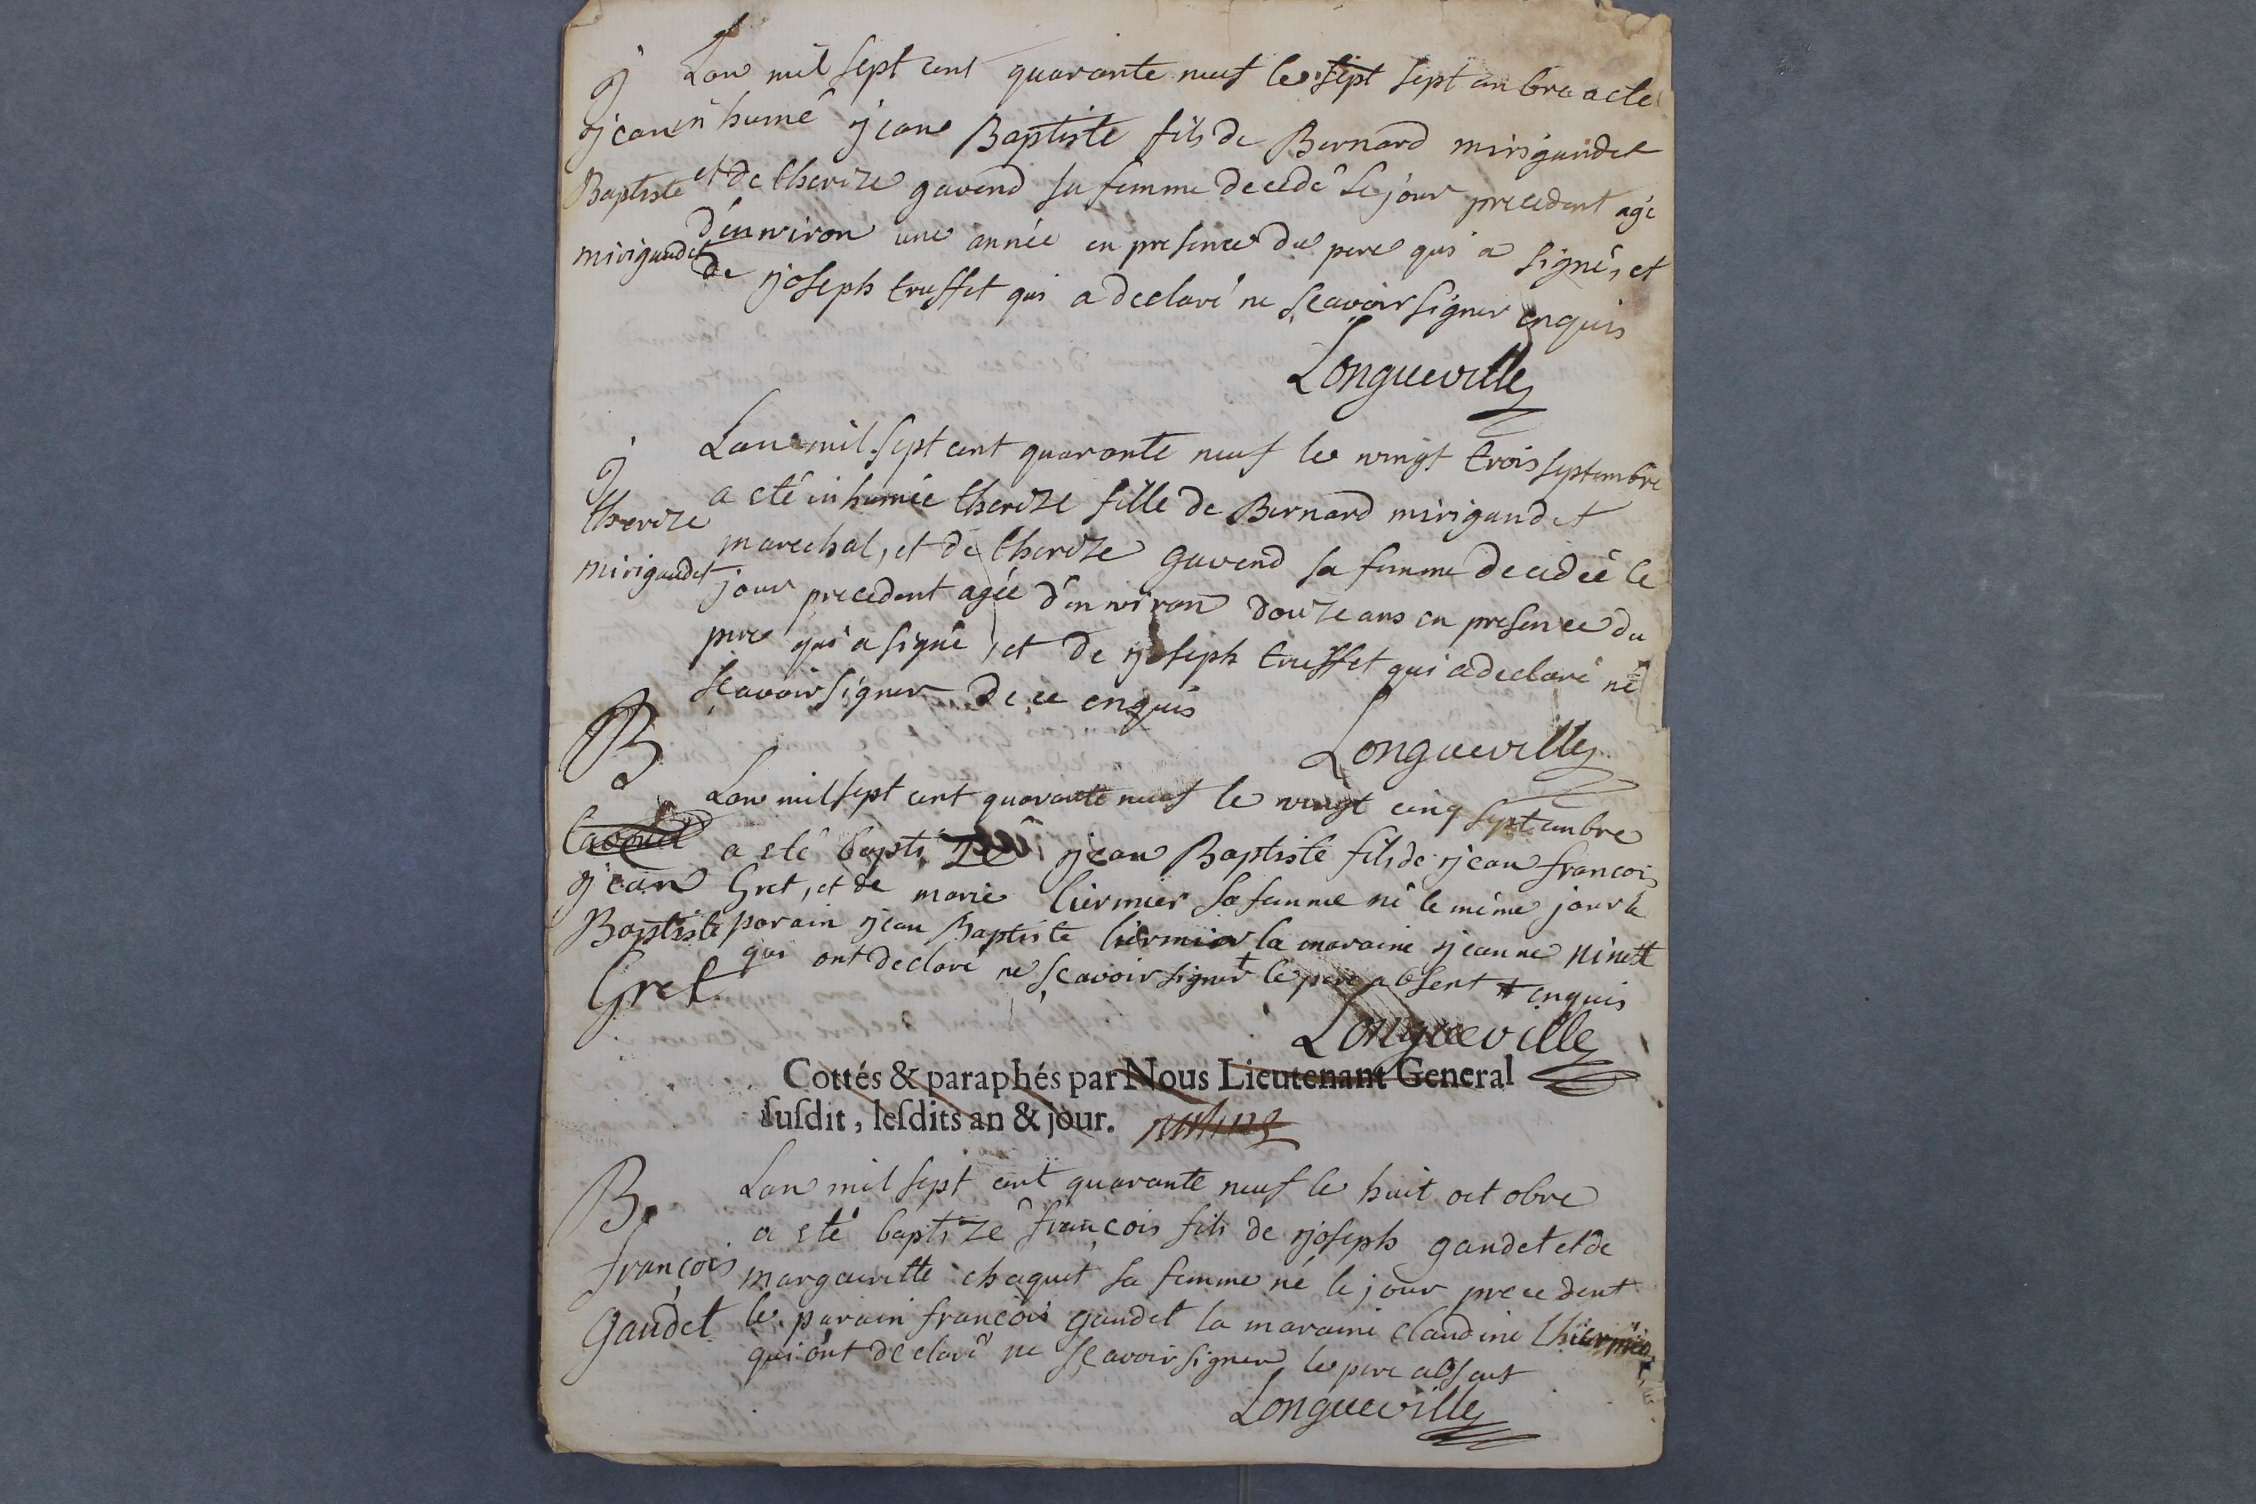 j
jean
Baptiste
mirigaudet
Lan mil sept cent quarante neuf le sept septambre a eté
inhumé jean Baptiste fils de Bernard mirigaudet
et de therize gavend sa femme decedé le jour precedent agé
d'environ une année en presence du pere qui a signé, et
de joseph truffet qui a declaré ne sçavoir signer enquis
Longueville
j
therize
mirigaudet
Lan mil sept cent quarante neuf le vingt trois septembre
a eté inhumée therize fille de Bernard mirigaudet
marechal, et de therize gavend sa femme decedée le
jour precedent agée d'environ douze ans en presence du
pere qui a signé, et de joseph truffet qui a declaré ne
sçavoir signer de ce enquis
Longueville
B
jean
Baptiste
Gret
Lan mil sept cent quarante neuf le vingt cinq septambre
a eté baptizé jean Baptiste fils de jean francois
Gret, et de marie liermier sa femme né le méme jour le
parain jean Baptiste liermier la maraine jeanne ninett
qui ont declaré ne sçavoir signer + le pere absent + enquis
Longueville
Cottés & paraphés par Nous Lieutenant General
susdit, lesdits an & jour.
B.
françois
Gaudet
Lan mil sept cent quarante neuf le huit octobre
a eté baptizé françois fils de joseph gaudet et de
margueritte chaquet sa femme né le jour precedent
le parain françois gaudet la maraine claudine
qui ont declaré ne sçavoir signer le pere absent
Longueville